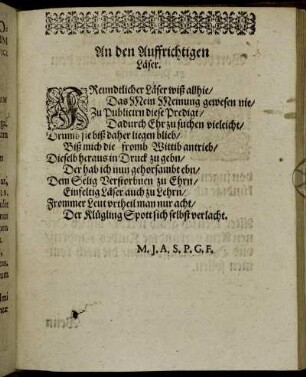 An den Auffrichtigen
Läser.
FReundtlicher Läser wiß allhie/
Das Mein Meinung gewesen nie/
Zu Publiciern diese Predigt/
Dadurch Ehr zu suchen vieleicht/
Drumb sie biß daher liegen blieb/
Biß mich die fromb Wittib antrieb/
Dieselb heraus in Druck zu gebn/
Der hab ich nun gehorsambt ebn/
Dem Selig Verstorbnen zu Ehrn/
Einfeltig Läser auch zu Lehrn/
Frommer Leut vrtheil man nur acht/
Der Klügling Spott sich selbst verlacht.
M. J. A. S. P. G. F.